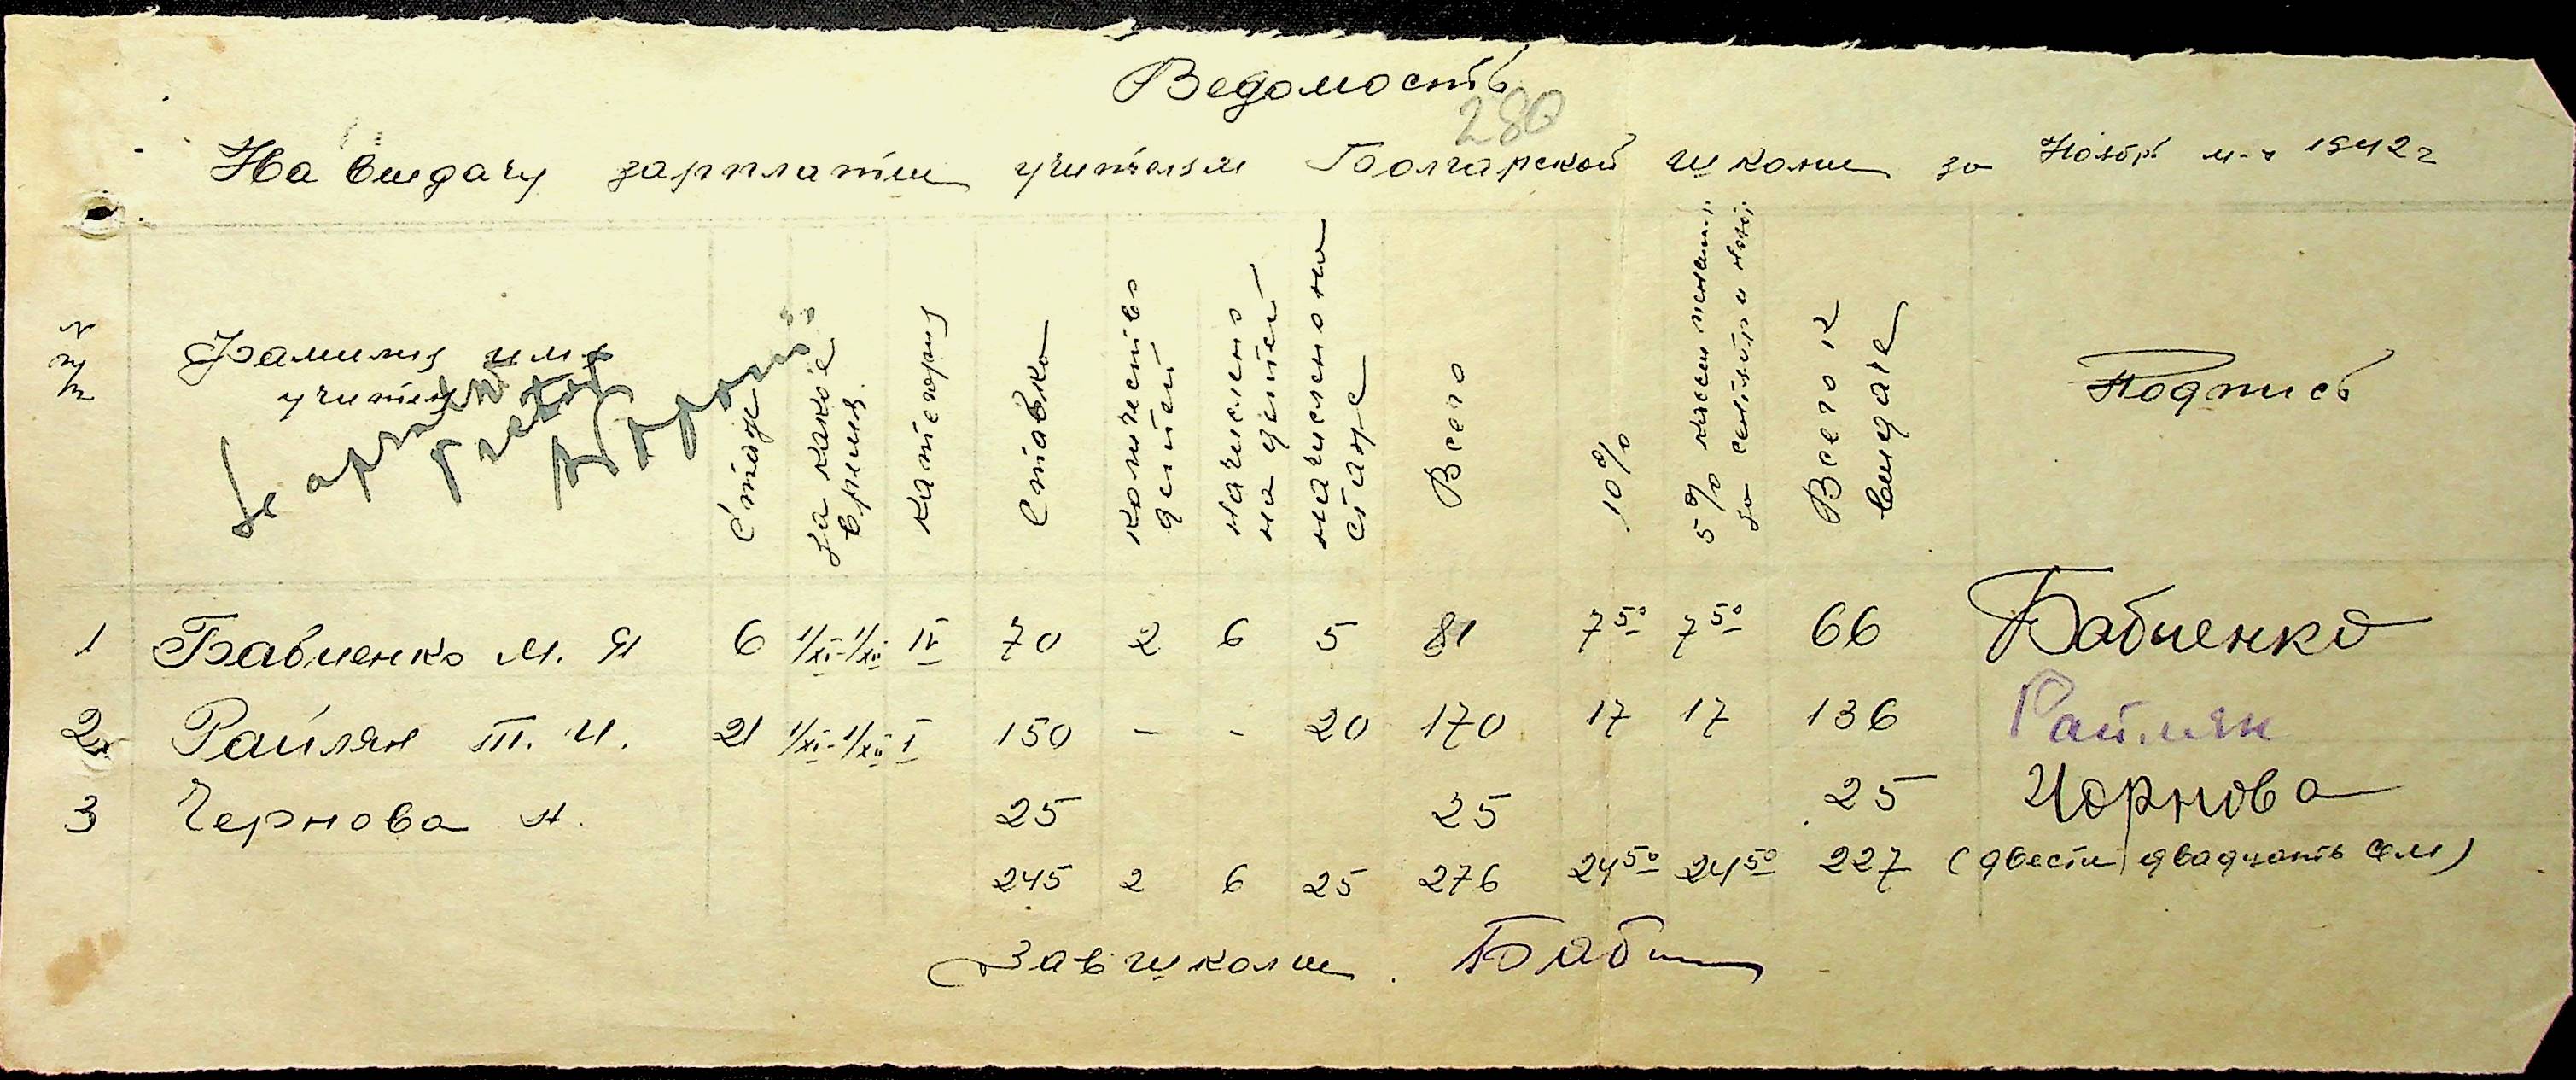 Ведомость
280
На выдачу зарплаты учителям Болгарской школы за Ноябрь м-ц 1942 г
N п/п
Фамилия имя учителя
Стаж
За какое время
Категория
Ставка
Количество детей
Начислено на детей
Начислено на стаж
Всего
10%
5%
за сентябрь и нояб.
Всего к выдаче
Подпись
1 Бабиенко М. Я 6 1/XI-1/XII IV 70 2 6 5 81 7 50 7 50 66 Бабиенко
2 Райлян Т. И. 21 1/XI-1/XII I 150 - - 20 170 17 17 136 Райлян
3 Чернова Н. 25 25 25 Чорнова
245 2 6 25 276 24 50 24 50 227 (двести двадцать сем)
Завшколы. Баб